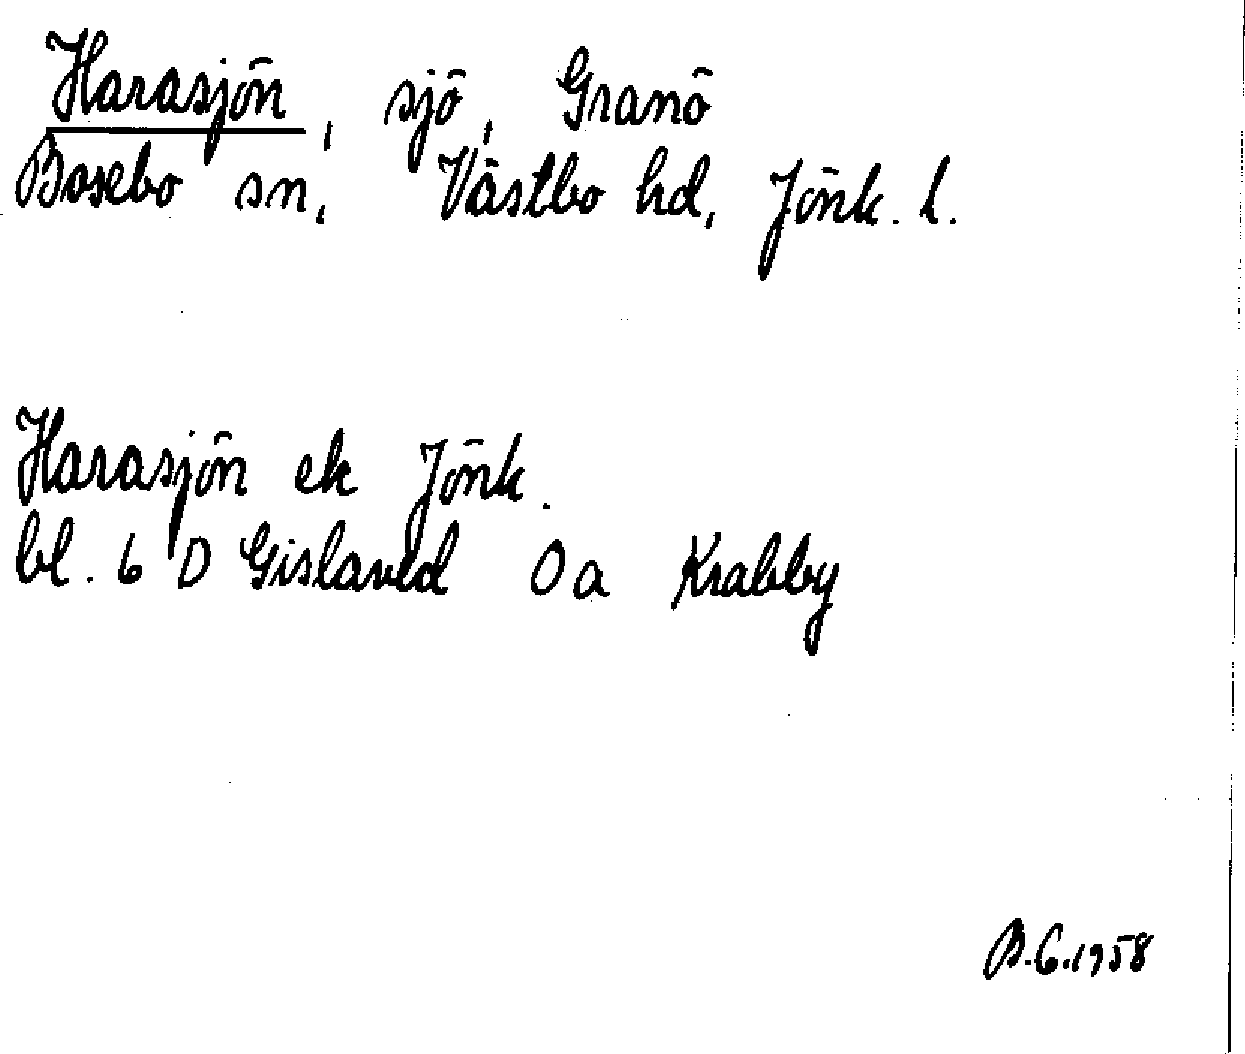 Harasjön, sjö, Granö
Bosebo sn, Västbo hd, Jönk. l.
Harasjön ek Jönk.
bl. 6 D Gislaved 0a Krabby
B.G.1958